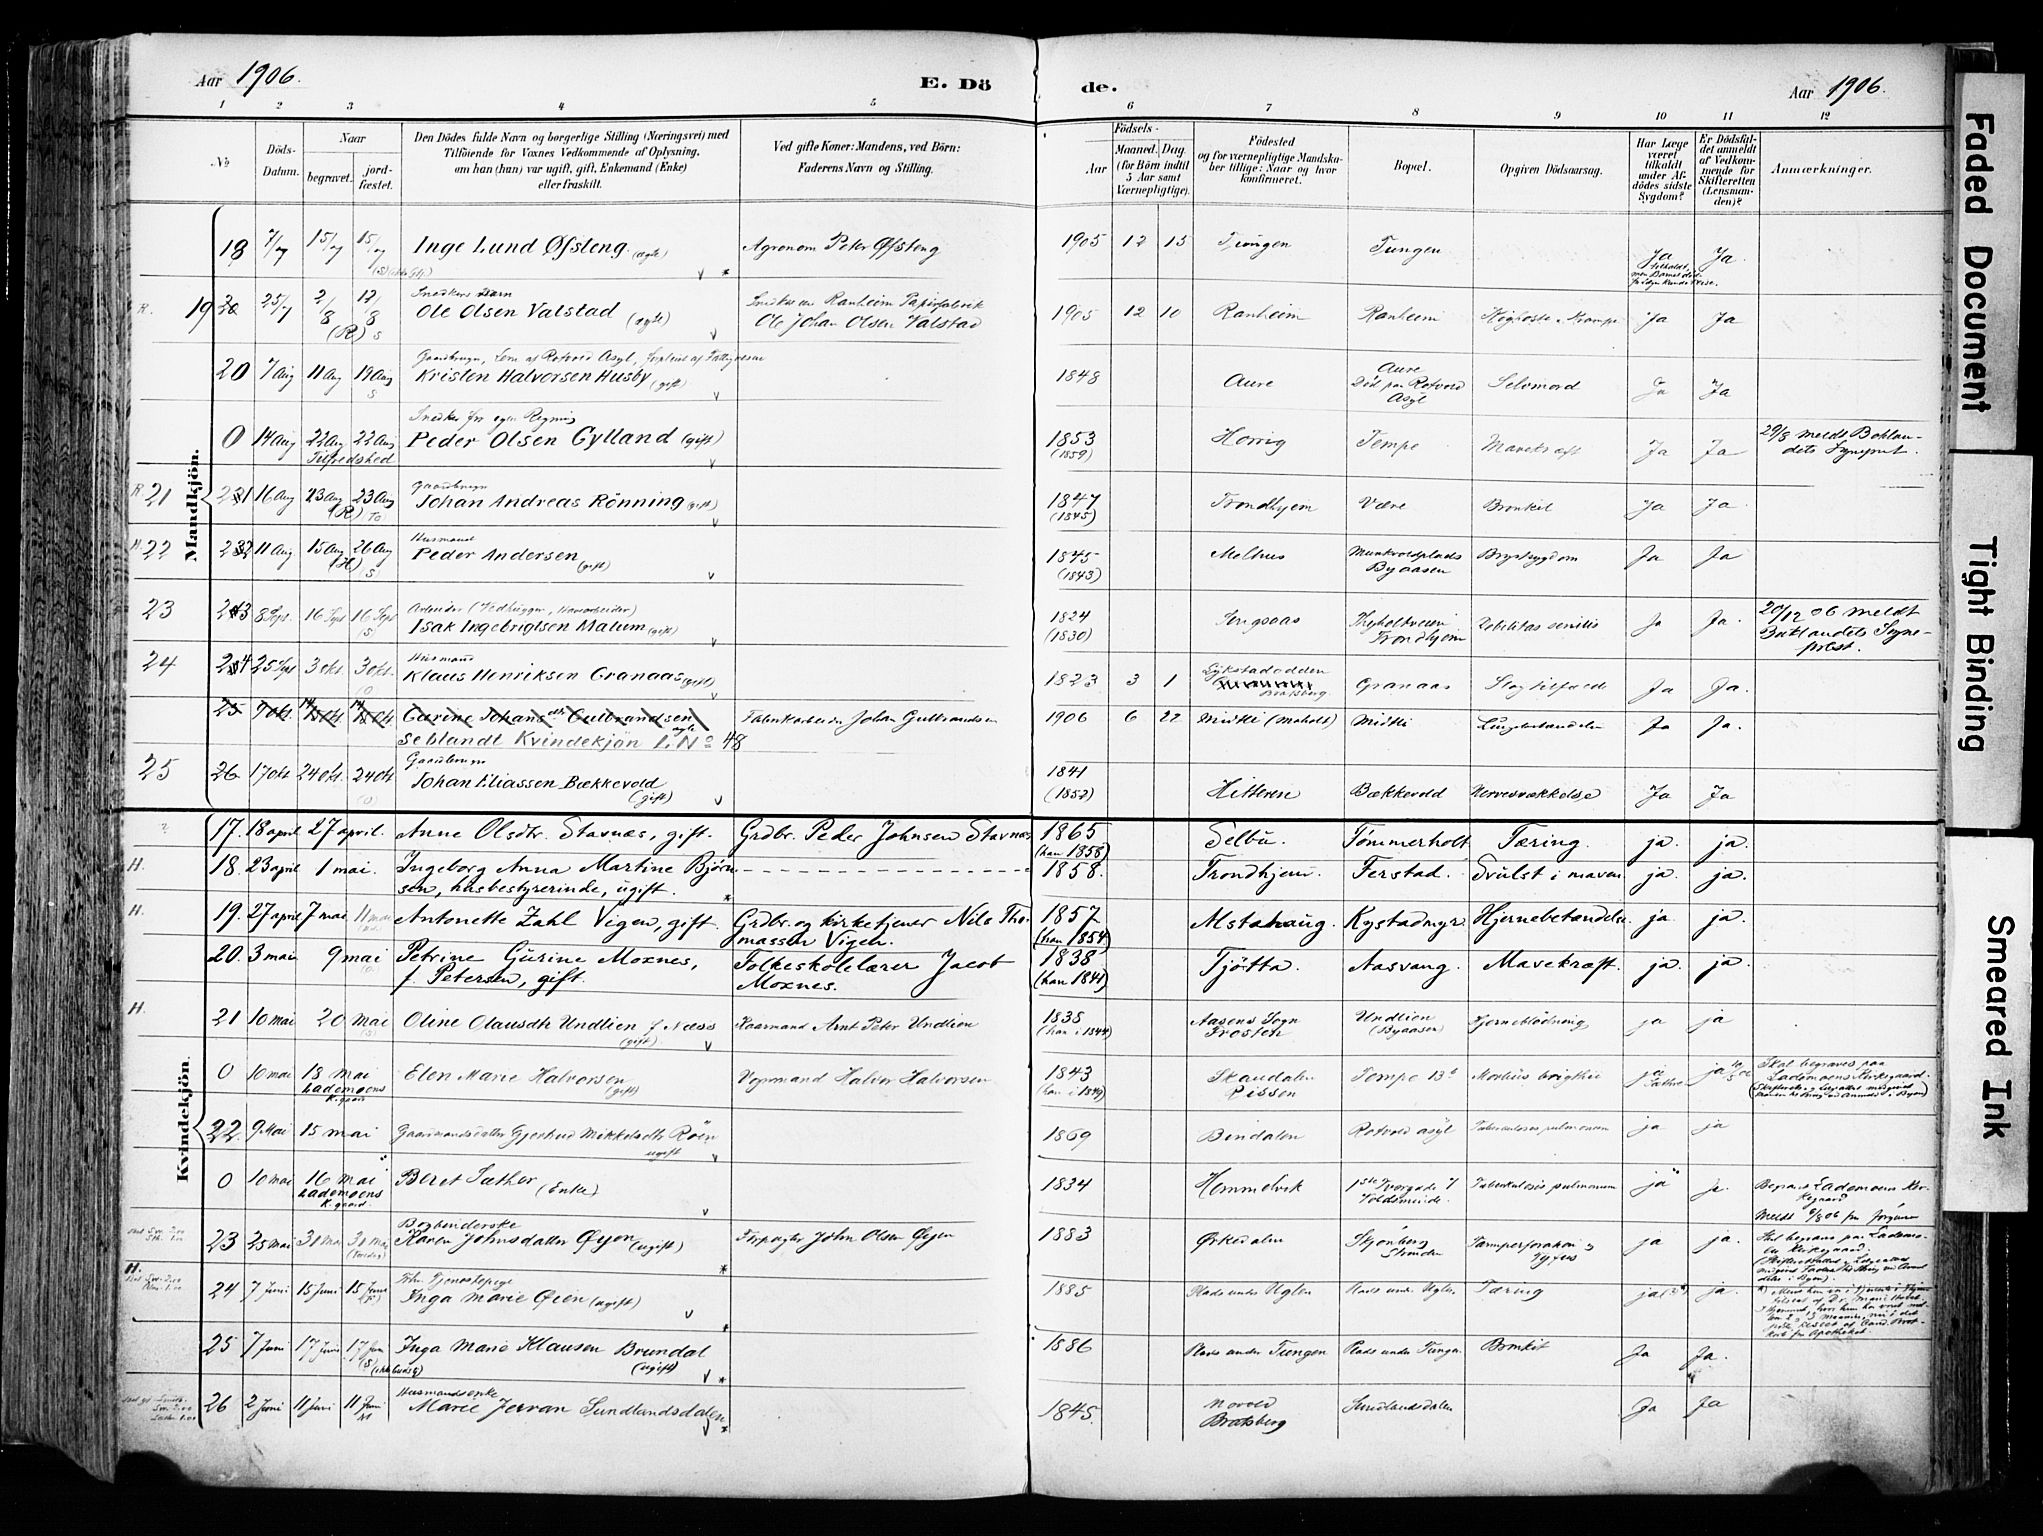 Aar 1906.
E. Dö
de.
Aar 1906.
1 2 3 4 5 6 7 8 9 10 11 12
No
Döds-
Datum.
Naar
begravet.
jord-
fæstet.
Den Dödes fulde Navn og borgerlige Stilling (Næringsvei) med
Tilföiende for Voxnes Vedkommende af Oplysning,
om han (hun) var ugift, gift, Enkemand (Enke)
eller fraskilt.
Ved gifte Koner: Mandens, ved Börn:
Faderens Navn og Stilling.
Födsels-
Aar
Maaned. Dag.
(for Börn indtil
5 Aar samt
Værnepligtige).
Födested
og for værnepligtige Mandska-
ber tillige: Naar og hvor
konfirmeret.
Bopæl.
Opgiven Dödsaarsag.
Har Læge
været
tilkaldt
under Af-
dödes sidste
Sygdom?
Er Dödsfal-
det anmeldt
af Vedkom-
mende for
Skifteretten
(Lensman-
den)?
Anmærkninger.
Mandkjön.
18 7/7 15/7 15/7 Inge Lund Øfsteng (ægte) Agronom Peter Øfsteng 1905 12 15 Tungen Tungen Ja Ja
R. 19 25/7 2/8 (R) 12/8 S
Ole Olsen Valstad (ægte) Ole Johan Olsen Valstad 1905 12 10 Ranheim Ranheim Kighoste Krampe Ja Ja
20 7 Aug 11 Aug 19 Aug S
Kristen Halvorsen Husby (gift) 1848 Aure Aure
Död paa Rotvold
Asyl Selvmord Ja Ja
Snedker for egen Regning
0 14 Aug 22 Aug 22 Aug Peder Olsen Gylland (gift) 1853 (1859) Horrig Tempe Mavekræft Ja Ja 29/8 meldt Baklan-
dets Sognepræst.
Tilfredshed
R. 21 16 Aug 23 Aug (R) 23 Aug Gaardbruger
Johan Andreas Rönning (gift) 1847 (1845) Trondhjem Være Bronkit Ja Ja
H. 22 11 Aug 15 Aug (H) 26 Aug (S) Husmand
Peder Andersen (gift) 1845 (1843) Melhus Munkvoldplads
Byaasen Brystsygdom Ja Ja
23 8 Sept. 16 Sept 16 Sept (S) Arbeider (Vedhugger, Havearbeider)
Isak Ingebrigtsen Malum (gift) 1824 (1830)
Trondhjem Debilitas senilis Ja Ja. 20/12 06 meldt
Baklandets Sogne-
præst.
24 25 Sept 3 okt. 3 okt. (O) Husmand
Klaus Henriksen Granaas (gift) 1823 3 1
Bratsberg. Granaas Slagtilfælde Ja Ja.
25 7 okt. Gurine Johansdtr Gulbrandsen ægte Fabrikarbeider Johan Gulbrandsen 1906 6 22 Midtli (Moholt) Midtli Lungebetændelse Ja Ja.
Seblandt Kvindekjön L. No 48
25 26 17 okt 24 okt. 24 okt (O) Gaardbruger
Johan Eliassen Bækkevold (gift) 1841 (1852) Hitteren Bækkevold Nervesvækkelse Ja Ja
Kvindekjön.
? 17. 18 april 27 april. Anne Olsdtr. Stavnæs, gift. Grdbr. Peder Johnsen Stavnæs 1865 (han 1858) Selbu. Tömmerholt Tæring. ja. ja.
H. 18. 23 april 1 mai. Ingeborg Anna Martine Bjørn-
sen, husbestyrerinde, ugift. 1858. Trondhjem. Ferstad. Svulst i maven ja. ja.
H. 19. 27 april 7 mai 11 mai Antonette Zahl Vigen, gift. Grdbr. og kirketjener Nils Tho-
massen Vigen. 1857 (han 1854) Alstahaug. Kystadmyr. Hjernebetændelse ja. ja.
20. 3 mai 9 mai Petrine Gurine Moxnes,
f. Petersen, gift. Folkeskolelærer Jacob
Moxnes. 1838 (han 1841) Tjötta. Aasvang. Mavekræft. ja. ja.
H. 21 10 mai 20 mai Oline Olausdtr Undlien f. Næss (gift) Kaarmand Arnt Peter Undlien 1835 (han i 1844) Aasens Sogn
Frosten Undlien
(Byaasen) Hjerneblödning ja ja
0 10 mai 18 mai
Lademoens
K.gaard Elen Marie Halvorsen (gift) Vognmand Halvor Halvorsen 1843 (han i 1849) Skaudalen
Rissen Tempe 13 Morbus brigthii ja ja Skal begraves paa
Lademoens Kirkegaard.
22. 9 Mai 15 mai Gaardmandsdatter Gjertrud Mikkelsdtr Röen ugift 1869 Bindalen Rotvold asyl Tuberculosis pulmonum ja ja
0 10 mai 16 mai
Lademoens
K.gaard. Beret Sæther (Enke) 1834 Hommelvik Tuberkulosis pulmonum ja ja. Begraves Lademoen Kir-
kegaard
23 25 mai 31 mai 31 mai Bogbinderske
Karen Johnsdatter Øyen (ugift) Forpagter John Olsen Øyen 1883 Ørkedalen Skjönberg
Strinden Tarmperforation
Tyfus ja ja.
Skal begraves paa Lademo-
en Kirkegaard.
H. 24 7 Juni 15 Juni 15 Juni
Inga Marie Øien (ugift) 1885 Plads under Uglen Plads under Uglen Tæring ja ja.
25 7 Juni 17 Juni 17 Juni Inga Marie Klausen Brundal (ugift) 1886 Plads under Tungen Plads under Tungen Bronkit Ja Ja.
26 2 Juni 11 Juni 11 Juni Husmandsenke
Marie Jervan Sundlandsdalen 1845. Movold
Bratsberg Sundlandsdalen Ja Ja
Faded Document
Tight Binding
Smeared Ink